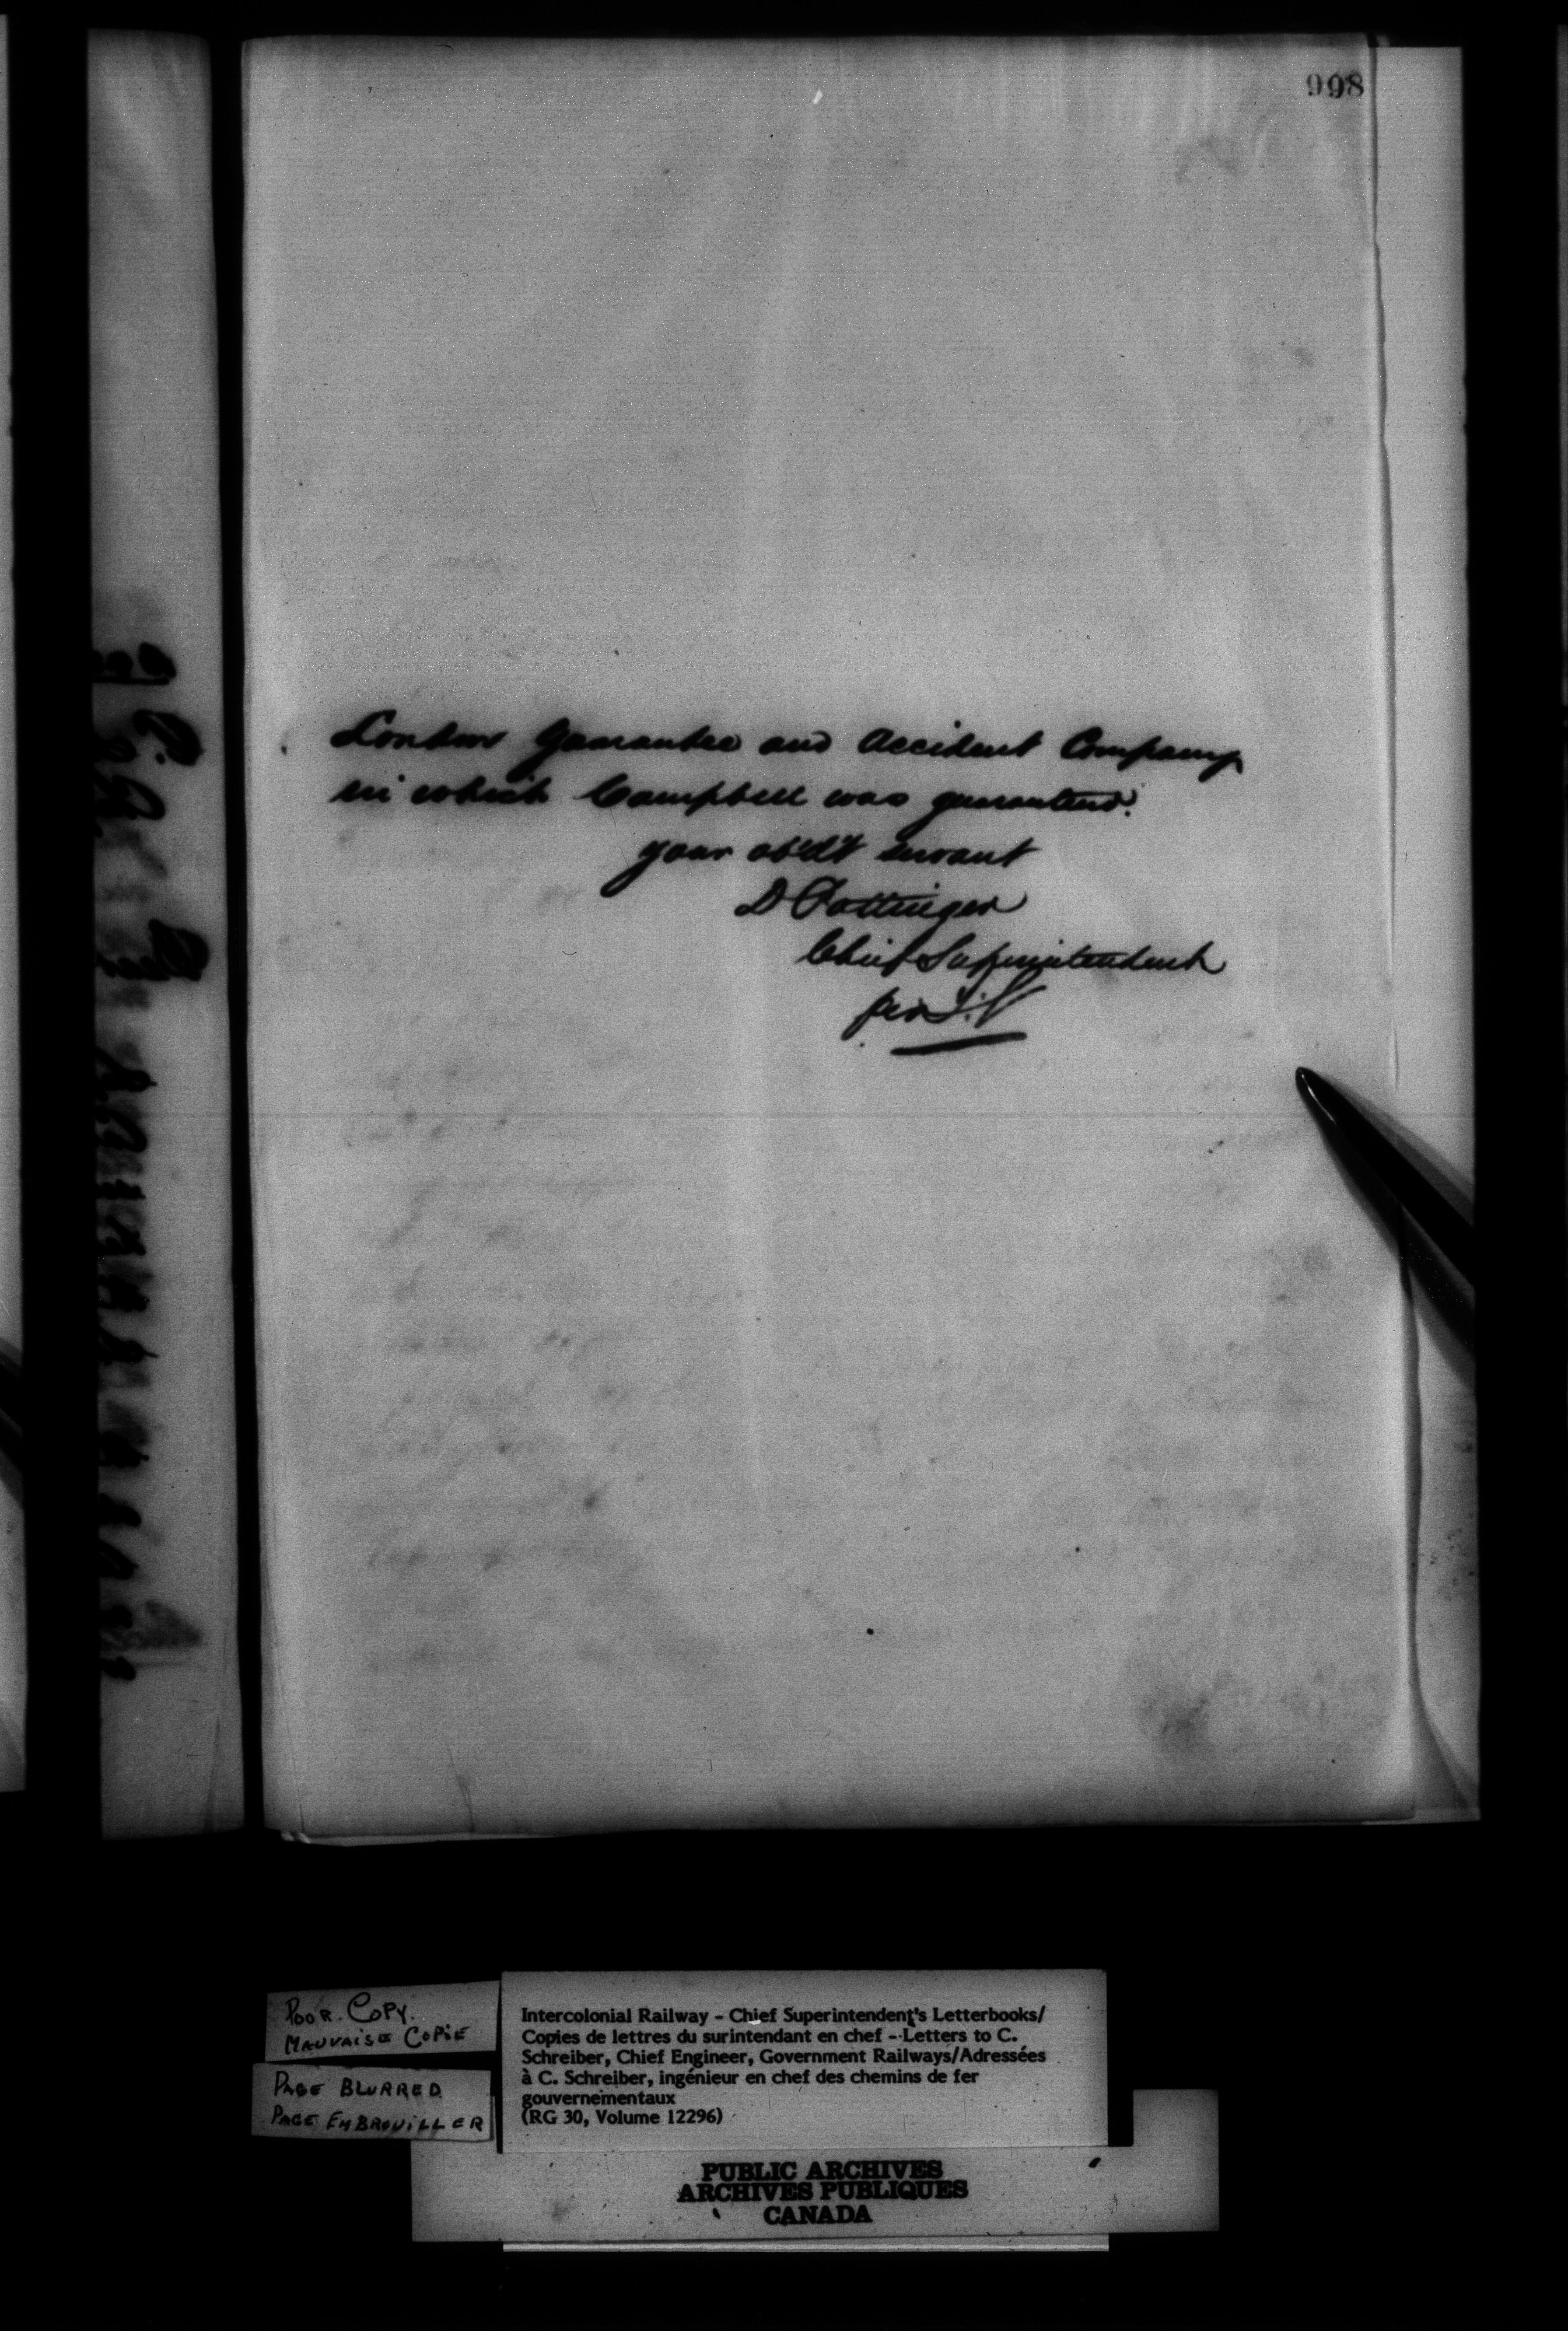 998
London Guarantee and Accident Company
in which Campbell was guaranteed.
your ob'd't servant
D Pottinger
Chief Superintendent
per
POOR COPY.
MAUVAISE COPIE
PAGE BLURRED
PAGE EMBROUILLER
Intercolonial Railway - Chief Superintendent's Letterbooks/
Copies de lettres du surintendant en chef - Letters to C.
Schreiber, Chief Engineer, Government Railways/Adressées
à C. Schreiber, ingénieur en chef des chemins de fer
gouvernementaux
(RG 30, Volume 12296)
PUBLIC ARCHIVES
ARCHIVES PUBLIQUES
CANADA